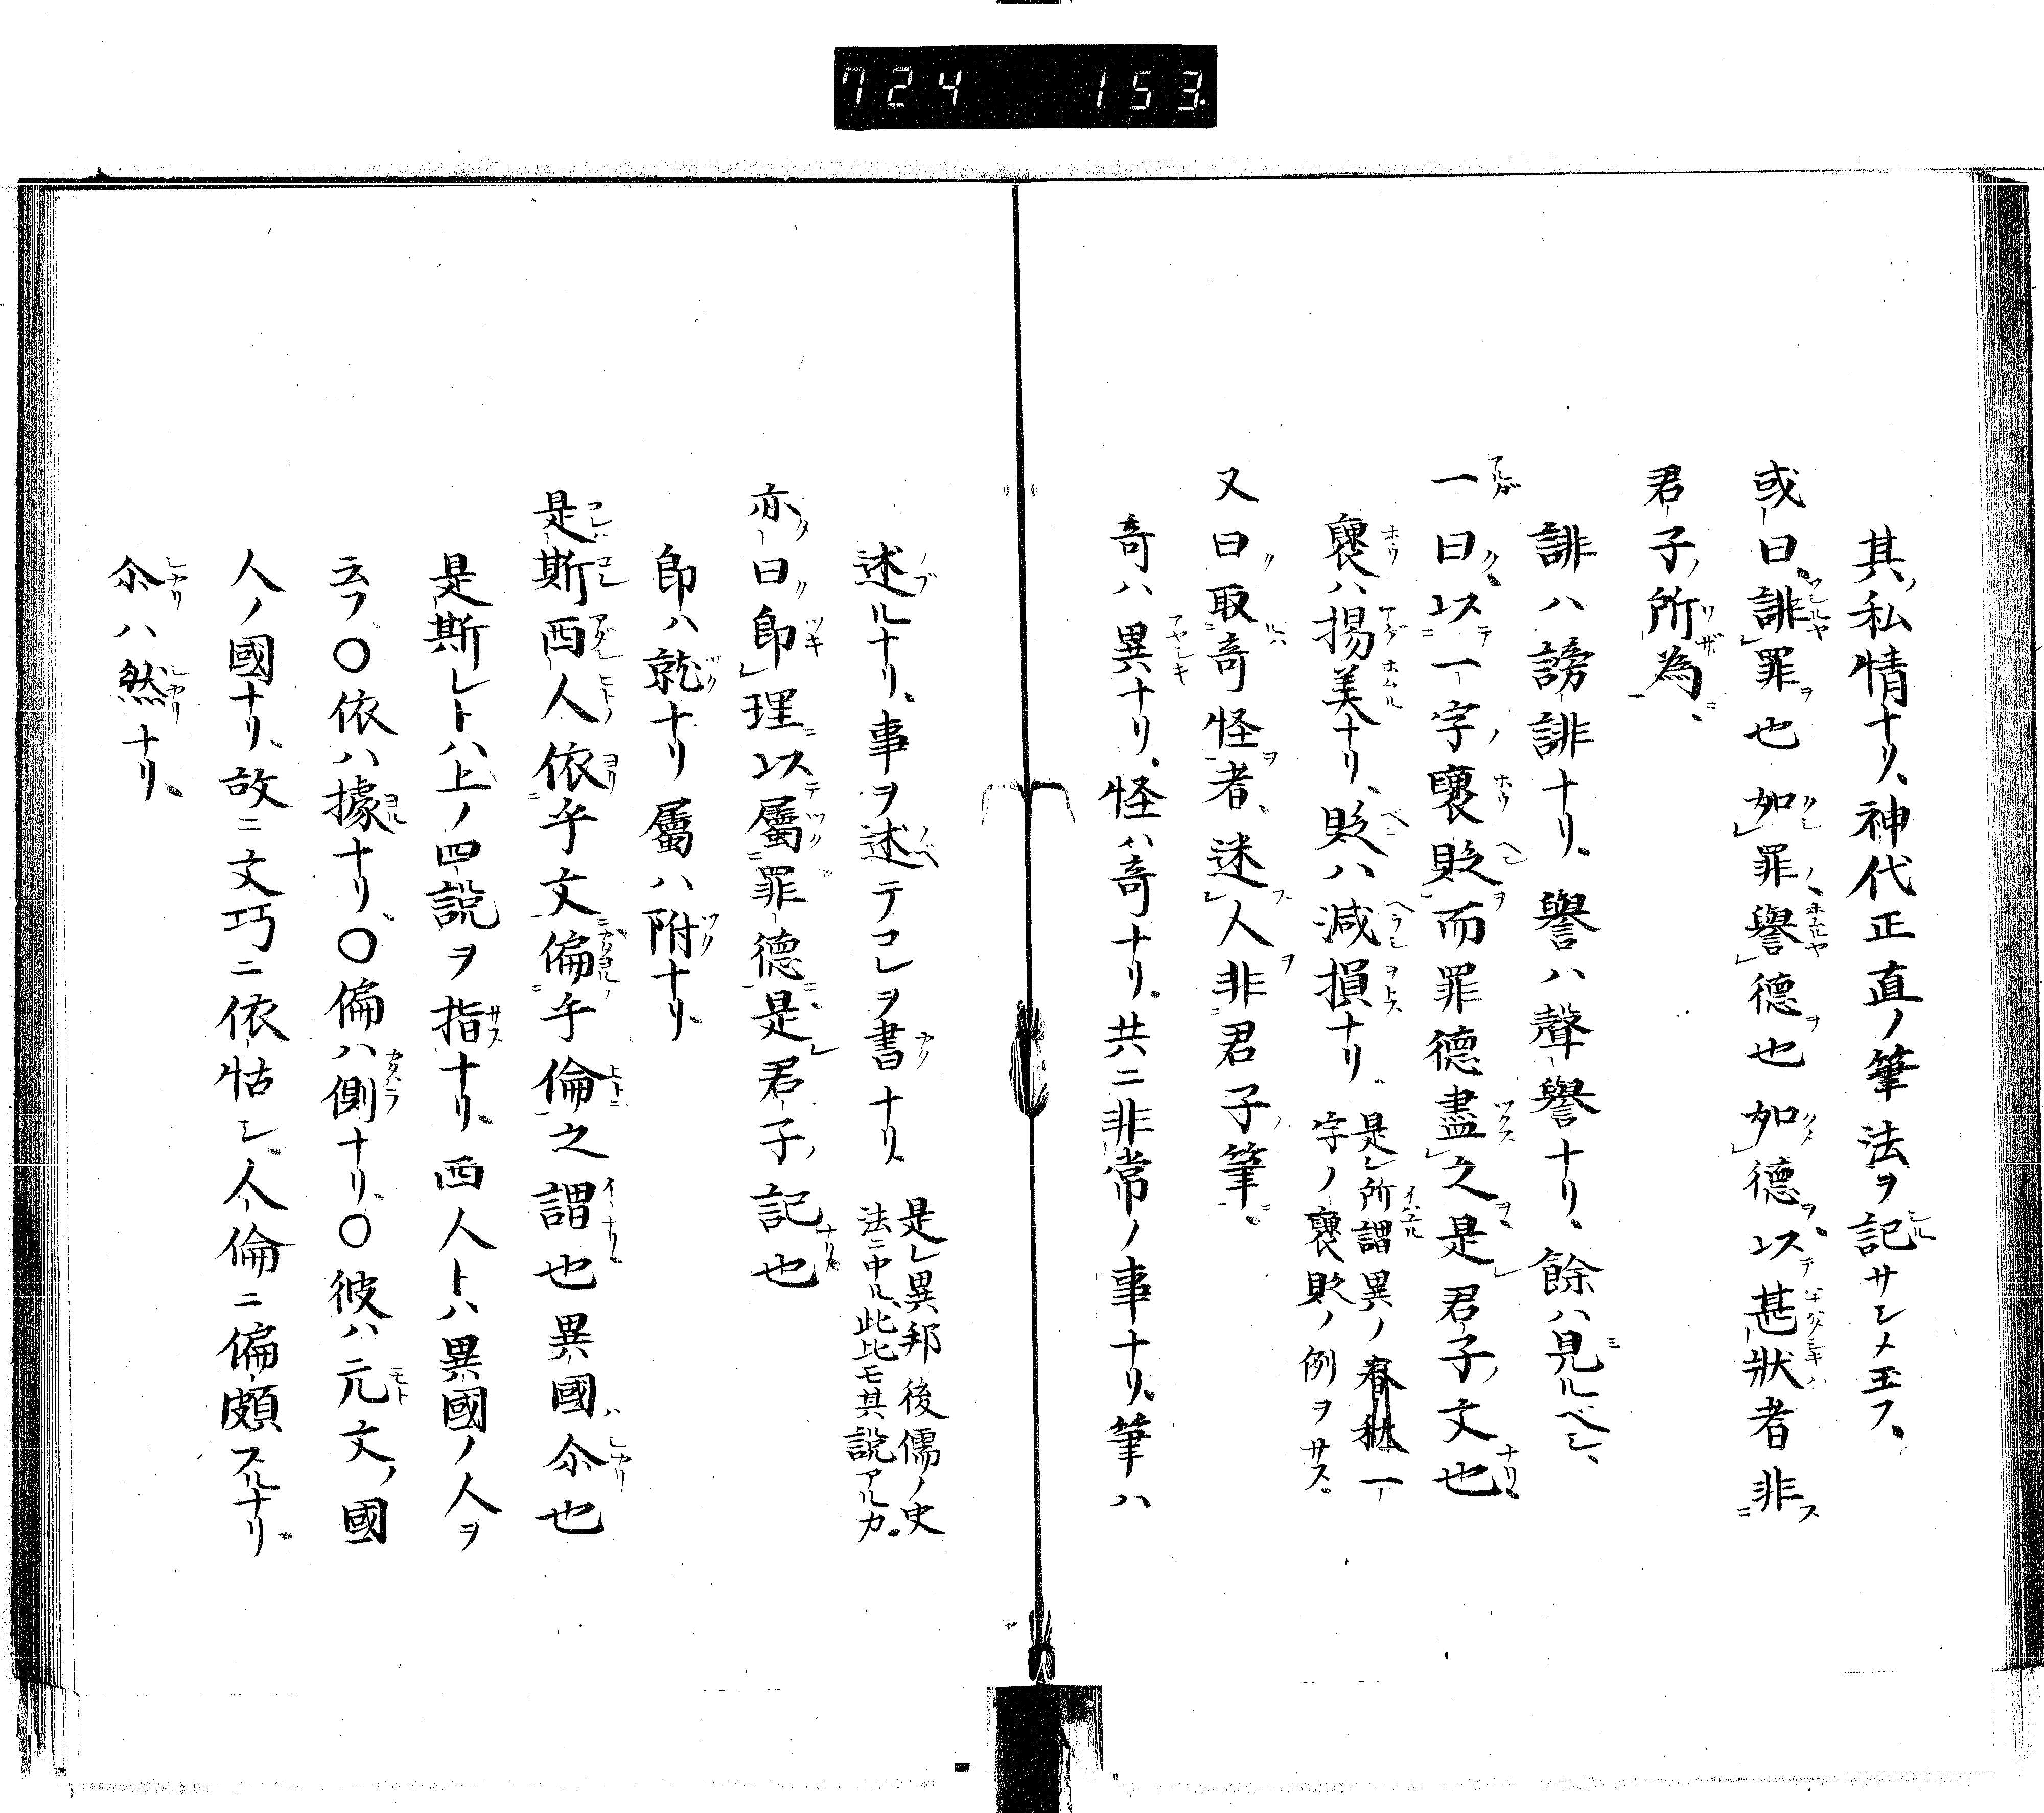 724 153.
其ノ私情ナリ、神代正直ノ筆法ヲ記サシメ玉フ、
或曰、誹罪也如罪、譽德也如德、以甚狀者非
君子ノ所為、
誹ハ謗誹ナリ、譽ハ聲譽ナリ、餘ハ見ルベシ、
一曰、以一字褒貶而罪德盡之是君子ノ文也
褒ハ揚美ナリ、貶ハ減損ナリ、是レ所謂異ノ春秋一字ノ褒貶ノ例ヲサス、
又曰取奇怪者、迷人非君子ノ筆、
奇ハ異ナリ、怪ハ奇ナリ、共ニ非常ノ事ナリ、筆ハ
述ルナリ、事ヲ述テコレヲ書ナリ、是レ異邦後儒ノ史法ニ中ル、此比モ其說アルカ、
亦曰即理以屬罪德是君子ノ記也
即ハ就ナリ屬ハ附ナリ、
是斯西人依乎文偏乎倫之謂也異國尒也
是斯レトハ上ノ四說ヲ指ナリ、西人トハ異國ノ人ヲ
云フ、〇依ハ據ナリ、〇偏ハ側ナリ、〇彼ハ元文ノ國
人ノ國ナリ、故ニ文巧ニ依怙シ、人倫ニ偏頗スルナリ、
尒ハ然ナリ、